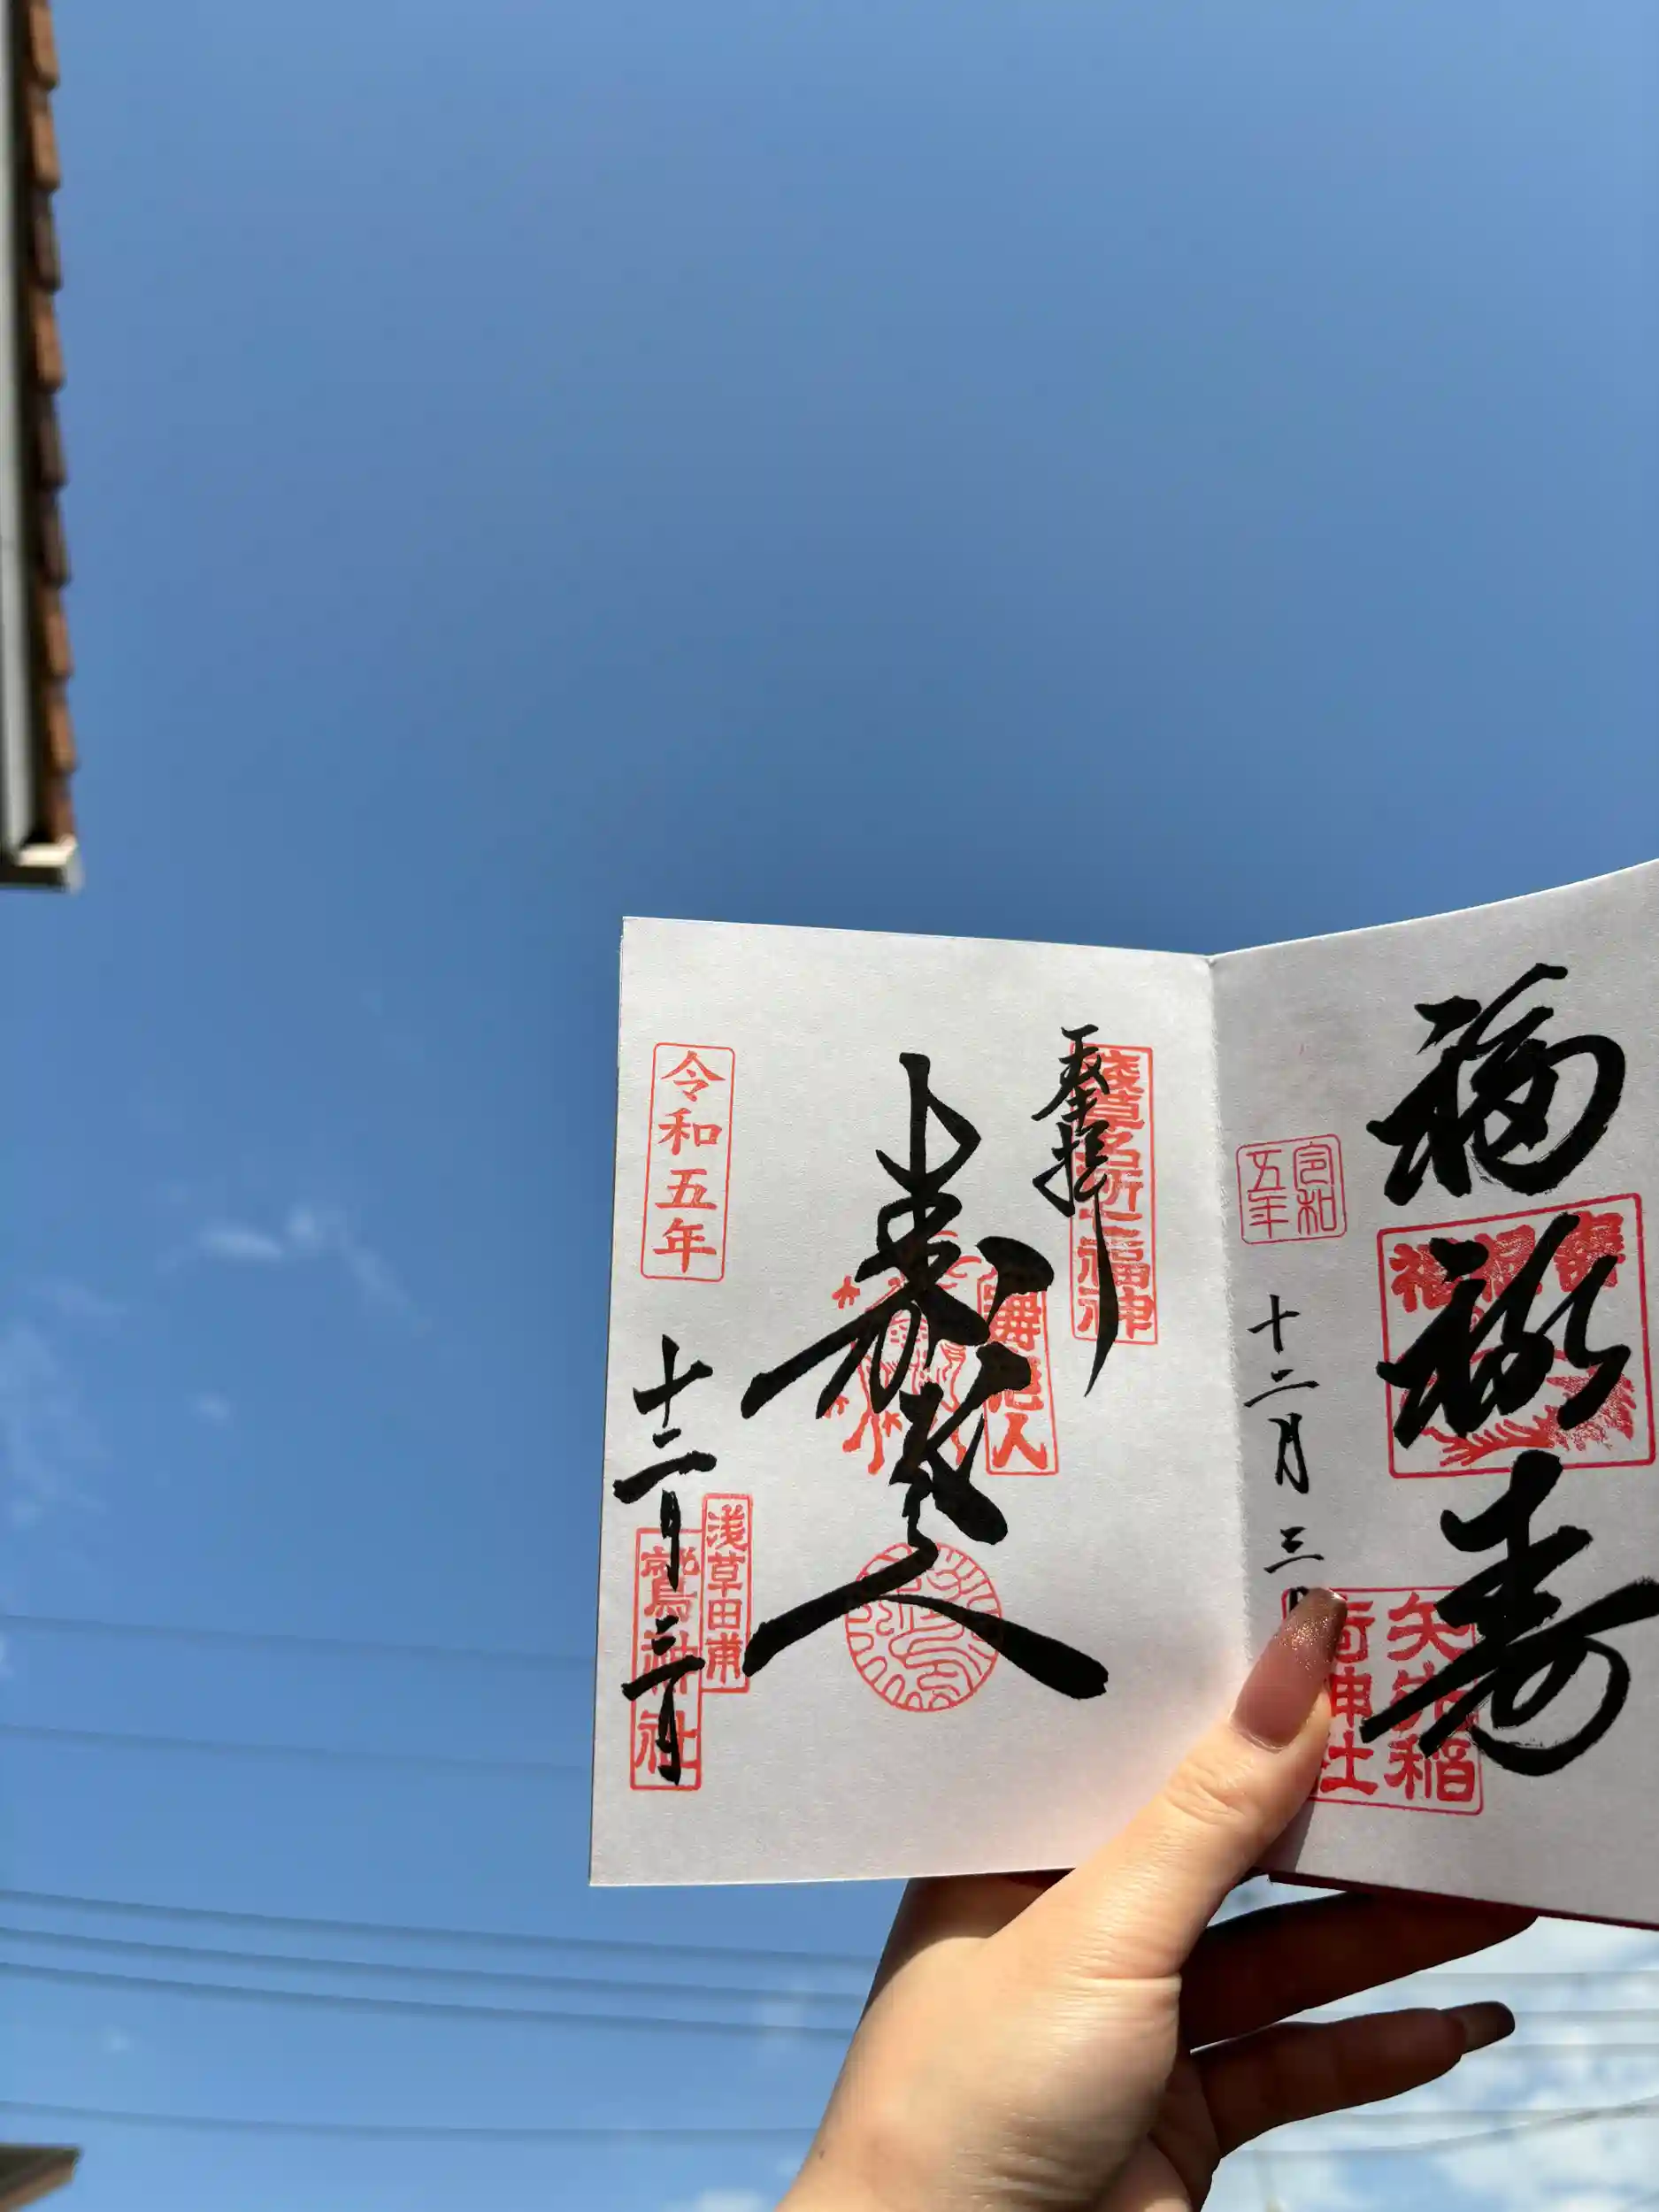 福禄寿
令和
五年
十二月三日
矢先稲
荷神社
奉拝
浅草名所七福神
寿老人
寿老人
令和五年
十二月三日
浅草田甫
鷲神社